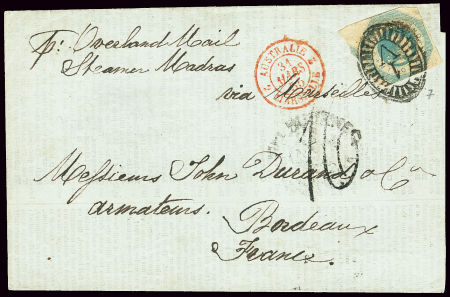 p: Overland Mail
Steamer Madras
via Marseilles
AUSTRALIE
31
MARS
MARSEILLE
10
Messieurs John Durand & Co
armateurs.
Bordeaux
France